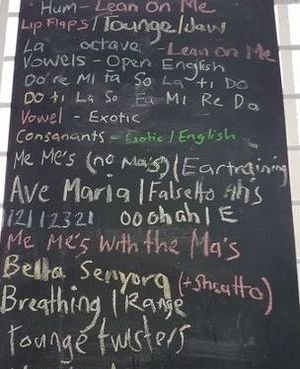 Hum - Lean On Me
Lip Flaps / Tounge / Jaw
La octave - Lean on Me
Vowels - Open English
Do re Mi fa So La ti Do
Do ti La So Fa Mi Re Do
Vowel - Exotic
Consanants - Exotic / English
Me Me's (no Ma's) / Eartraining
Ave Maria / Falsetto Ahs
121 12321 ooohah | E
Me Me's With the Ma's
Bella Senyora (+ Staccatto)
Breathing / Range
Tounge twisters